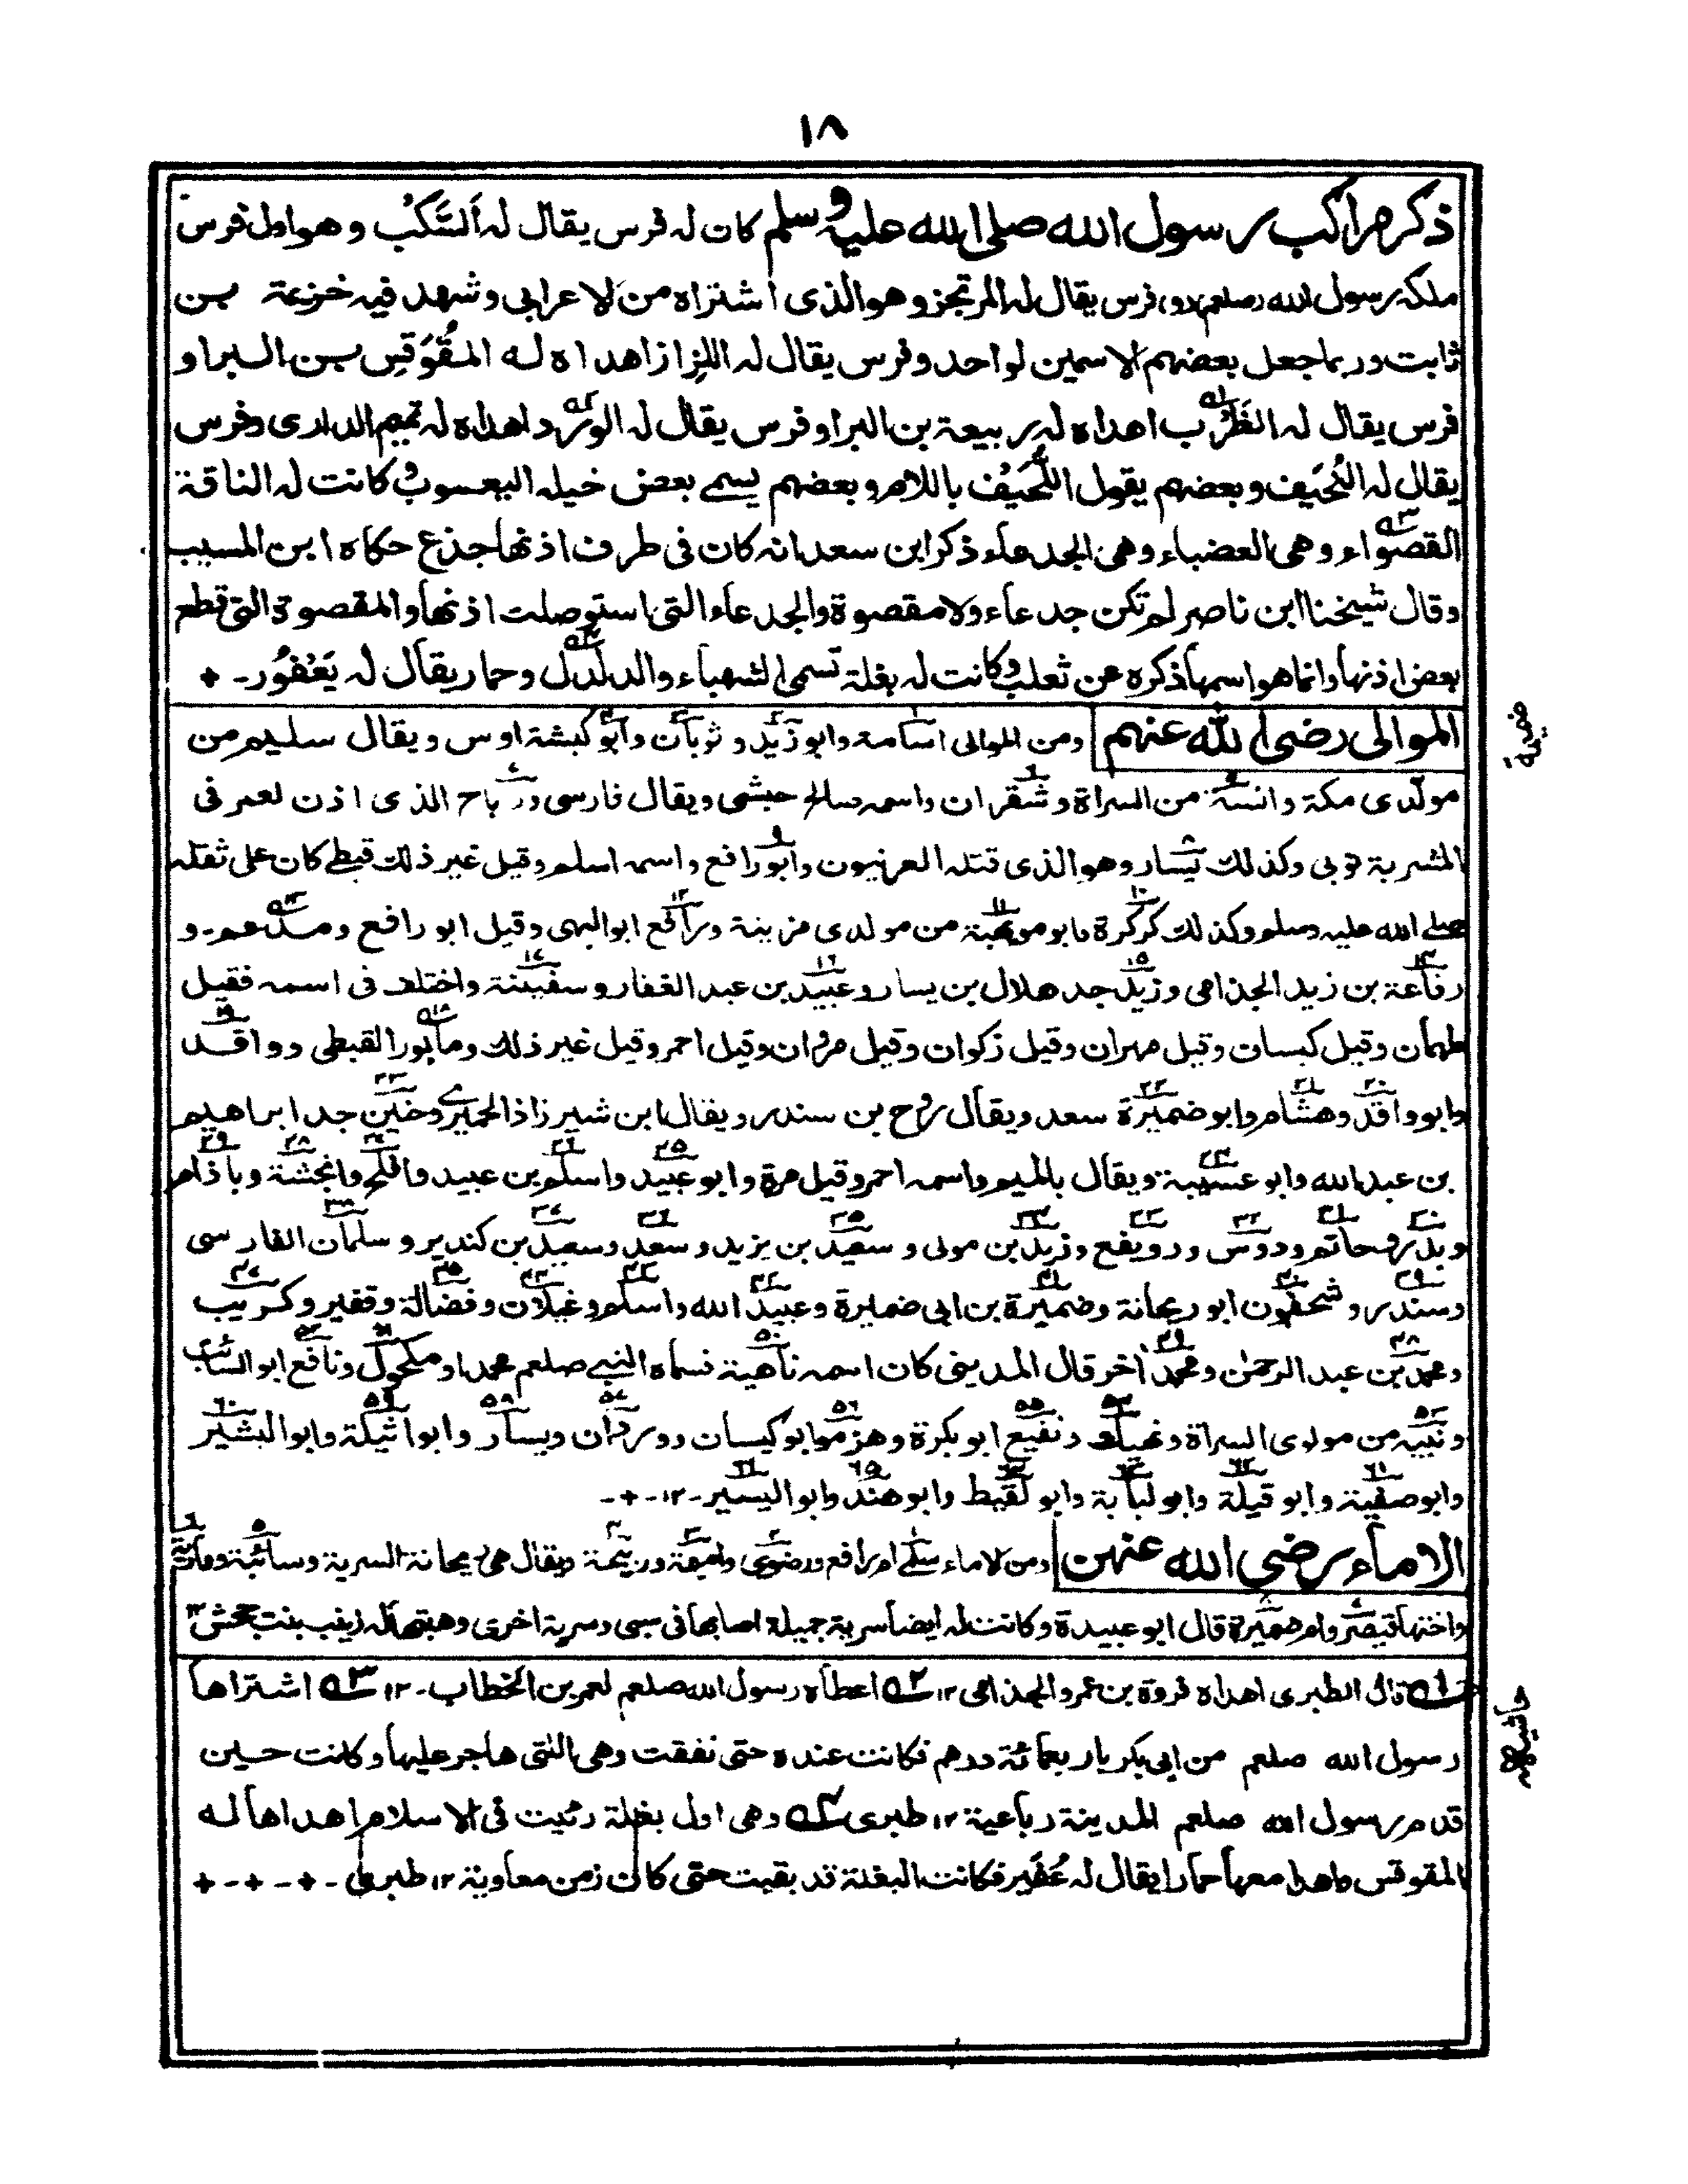 ١٨
ذكر مراكب رسول الله صلى الله عليه وسلم كان له فرس يقال له اَلسَّكْبُ وهو اول فرس
ملكه رسول الله (صلعم) (و) فرس يقال له المرتجز وهو الذى اشتراه من الاعرابى وشهد فيه خزيمة بن
ثابت وربما جعل بعضهم الاسمين لواحد وفرس يقال له اللِزاز اهداه له المُقَوقِس بن البرا و
فرس يقال له الظَرِب اهداه له ربيعة بن البرا وفرس يقال له الورد اهداه له تميم الدارى وفرس
يقال له النُحَيف وبعضهم يقول اللُّحَيْف باللام وبعضهم يسمے بعض خيله اليعسوب وكانت له الناقة
القصواء وهى العضباء وهى الجدعاء ذكر ابن سعد انه كان فى طرف اذنها جذع حكاه ابن المسيب
وقال شيخنا ابن ناصر لم تكن جدعاء ولا مقصوة والجدعاء التى استوصلت اذنها والمقصوة التى قطع
بعض اذنها وانما هو اسمها ذكره عن ثعلب وكانت له بغلة تسمى الشهباء والدلدل وحمار يقال له يَعْفُوْر۔ +
الموالى رضى الله عنهم ومن الموالى اسامة وابو زيد وثوبان وابو كبشة اوس ويقال سليم من
مولّدى مكة وانسة من السراة وشقران واسمه صالح حبشى ويقال فارسى ورباح الذى اذن لعمر فى
المشربة نوبى وكذلك يسار وهو الذى قتله العرنيون وابو رافع واسمه اسلم وقيل غير ذلك قبطے كان على ثقله
صلے الله عليه وسلم وكذلك كركرة وابو مويهبة من مولدى مزينة ورافع ابو البهى وقيل ابو رافع ومدعم۔ و
رفاعة بن زيد الجذامى وزيد جد هلال بن يسار وعبيد بن عبد الغفار وسفينة واختلف فى اسمه فقيل
طهمان وقيل كيسان وقيل مهران وقيل ذكوان وقيل مروان وقيل احمر وقيل غير ذلك ومابور القبطى وواقد
وابو واقد وهشام وابو ضميرة سعد ويقال روح بن سندر ويقال ابن شيرزاذ الحميرے وحنين جد ابراهيم
بن عبد الله وابو عسيبة ويقال بالميم واسمه احمر وقيل مرة وابو عبيد واسلم بن عبيد وافلح وانجشة وباذام
وبدر وحاتم ودوس ورويفع وزيد بن مولى وسعيد بن يزيد وسعد وسعيد بن كندير وسلمان الفارسى
وسندر وشمعون ابو ريحانة وضميرة بن ابى ضميرة وعبيد الله واسلم وغيلان وفضالة وقفير وكريب
ومحمد بن عبد الرحمٰن ومحمد اٰخر قال المدينى كان اسمه ناهية فسماه النبے صلعم محمدا ومكحول ونافع ابو السائب
ونبيه من مولدى السراة ونهيك ونفيع ابو بكرة وهرمز ابو كيسان ووردان ويسار وابو اثيلة وابو البشير
وابو صفية وابو قيلة وابو لبابة وابو لقيط وابو هند وابو اليسير۔ ١٢۔+۔
الاماء رضى الله عنهن ومن الاماء سلمے ام رافع ورضوى واميمة وريحة ويقال هى ريحانة السرية وسائبة ومارية
واختها قيصر وام ضميرة قال ابو عبيدة وكانت له ايضا سرية جميلة اصابها فى سبى وسرية اخرى وهبتها له زينب بنت جحش ١٢
؎١ قال الطبرى اهداه فروة بن عمرو الجذامى ١٢ ؎٢ اعطاه رسول الله صلعم لعمر بن الخطاب۔ ١٢ ؎٣ اشتراها
رسول الله صلعم من ابى بكر باربعمائة درهم فكانت عنده حتى نفقت وهى التى هاجر عليها وكانت حين
قدم رسول الله صلعم المدينة رباعية ١٢ طبرى ؎٤ وهى اول بغلة رئيت فى الاسلام اهداها له
المقوقس واهدا معها حمارا يقال له عُفَير فكانت البغلة قد بقيت حتى كان زمن معاوية ١٢ طبرى ۔+۔+۔+
ضميمة
حاشيه